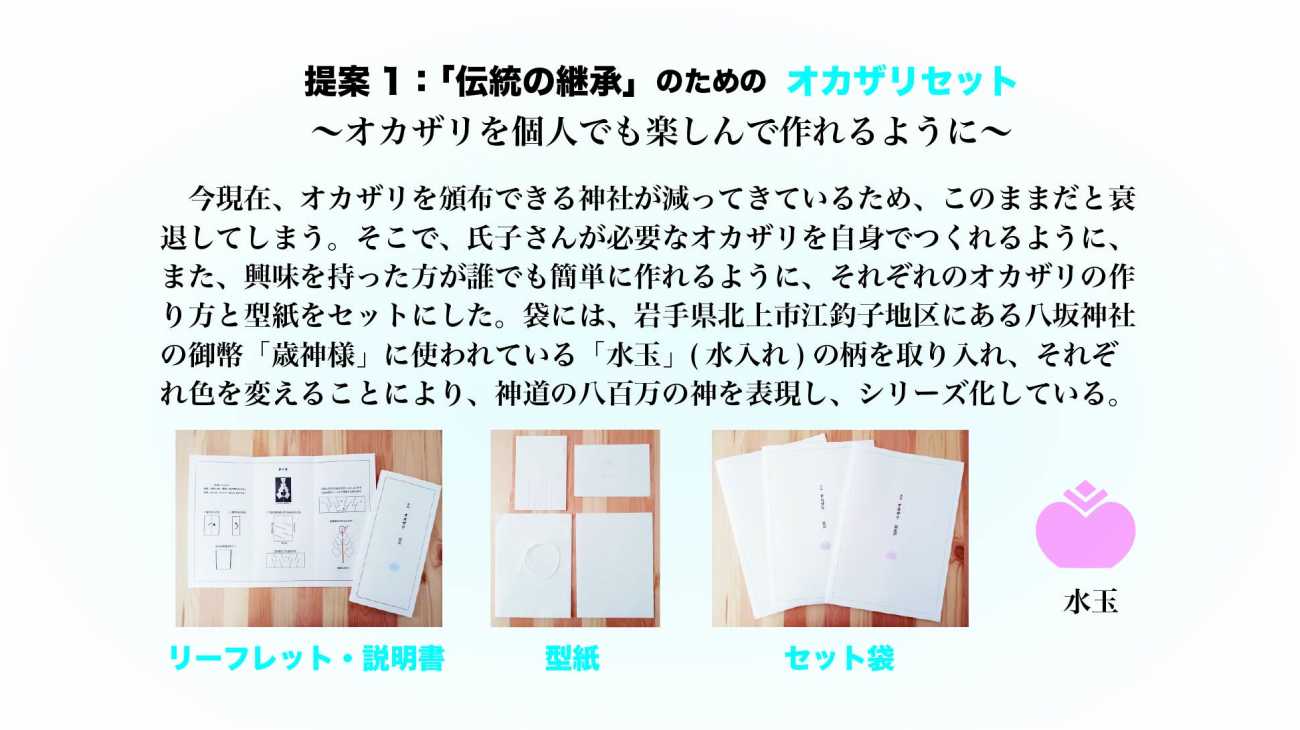 提案1：「伝統の継承」のための オカザリセット
〜オカザリを個人でも楽しんで作れるように〜
今現在、オカザリを頒布できる神社が減ってきているため、このままだと衰
退してしまう。そこで、氏子さんが必要なオカザリを自身でつくれるように、
また、興味を持った方が誰でも簡単に作れるように、それぞれのオカザリの作
り方と型紙をセットにした。袋には、岩手県北上市江釣子地区にある八坂神社
の御幣「歳神様」に使われている「水玉」(水入れ)の柄を取り入れ、それぞ
れ色を変えることにより、神道の八百万の神を表現し、シリーズ化している。
水玉
リーフレット・説明書
型紙
セット袋